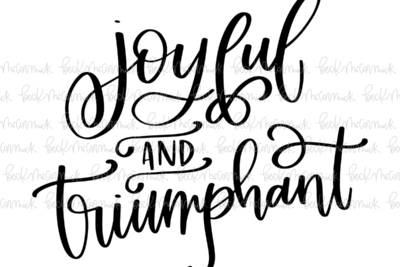 joyful
AND
triumphant